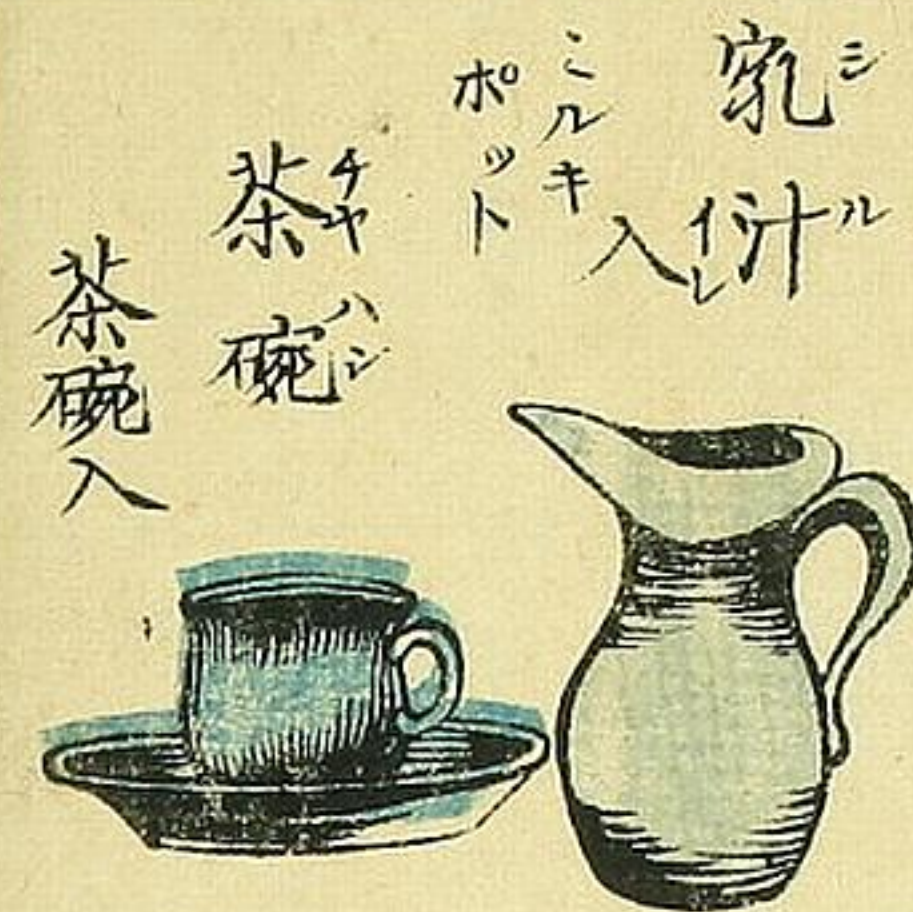 乳汁入
シル イレ
ミルキ
ポット
茶碗
チヤ ハン
茶碗入